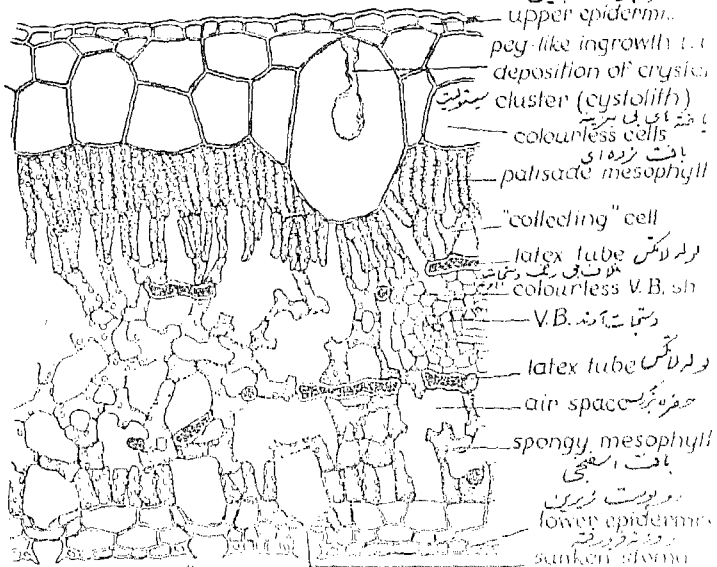 upper epidermi
peg-like ingrowth
deposition of crystal
cluster (cystolith) سیستولیت
یاخته های بی سبزینه
colourless cells
بافت نرده ای
palisade mesophyll
"collecting" cell
latex tube لوله لاتکس
غلاف بی رنگ دستجات
colourless V.B. sh
V.B. دستجات آوند
latex tube لوله لاتکس
air space حفره
spongy mesophyll
بافت اسفنجی
روپوست زیرین
lower epidermis
روزنه فرورفته
sunken stoma